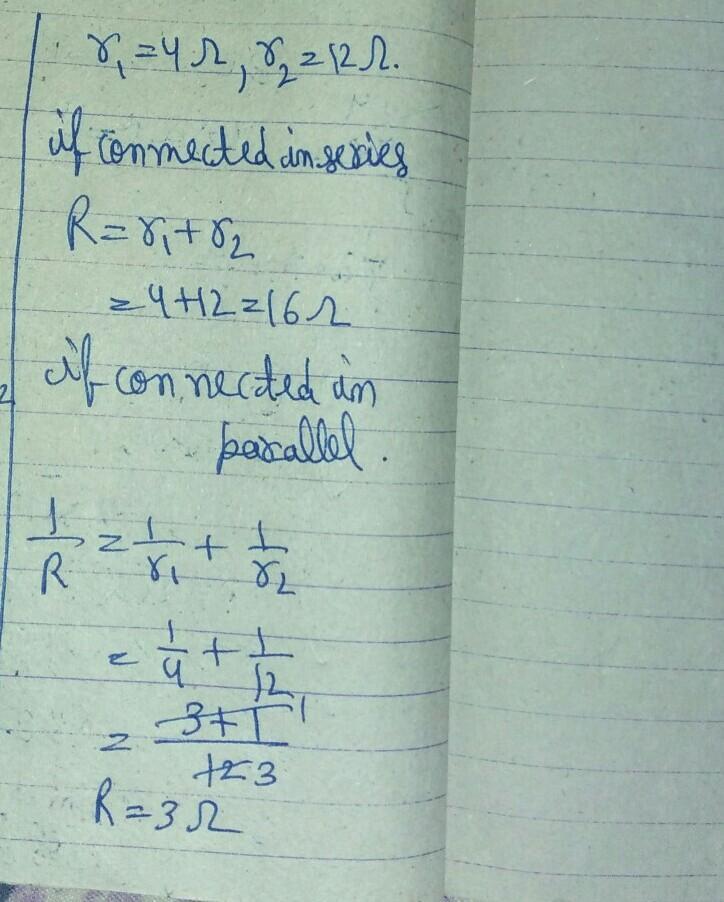 r₁ = 4 Ω, r₂ = 12 Ω.
if connected in series
R = r₁ + r₂
= 4 + 12 = 16 Ω
if connected in
parallel.
1/R = 1/r₁ + 1/r₂
= 1/4 + 1/12
= 3+1 1 / 12 3
R = 3 Ω
2